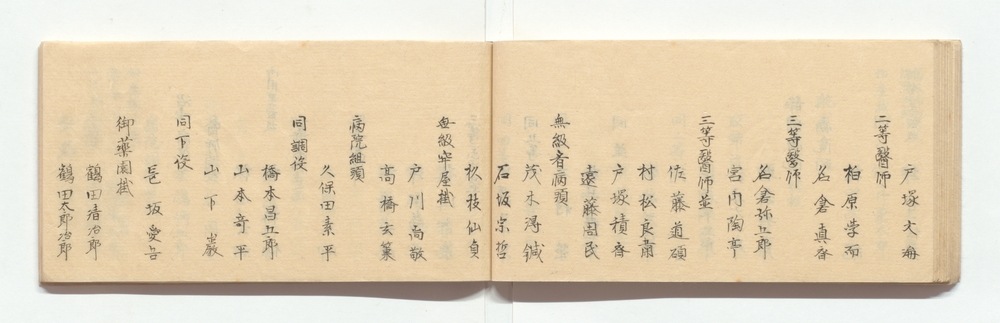 戸塚文海
二等醫師
柏原学而
名倉真斎
三等醫師
名倉弥五郎
宮内陶亭
三等醫師並
佐藤道碩
村松良粛
戸塚積斎
遠藤周民
無級者病頭
茂木得鍼
石坂宗哲
杉枝仙貞
無級牢屋掛
戸川尚敬
高橋玄策
病院組頭
久保田素平
同調役
橋本昌五郎
山本奇平
山下巌
同下役
長坂愛吉
御薬園掛
鶴田清治郎
鶴田太郎治郎